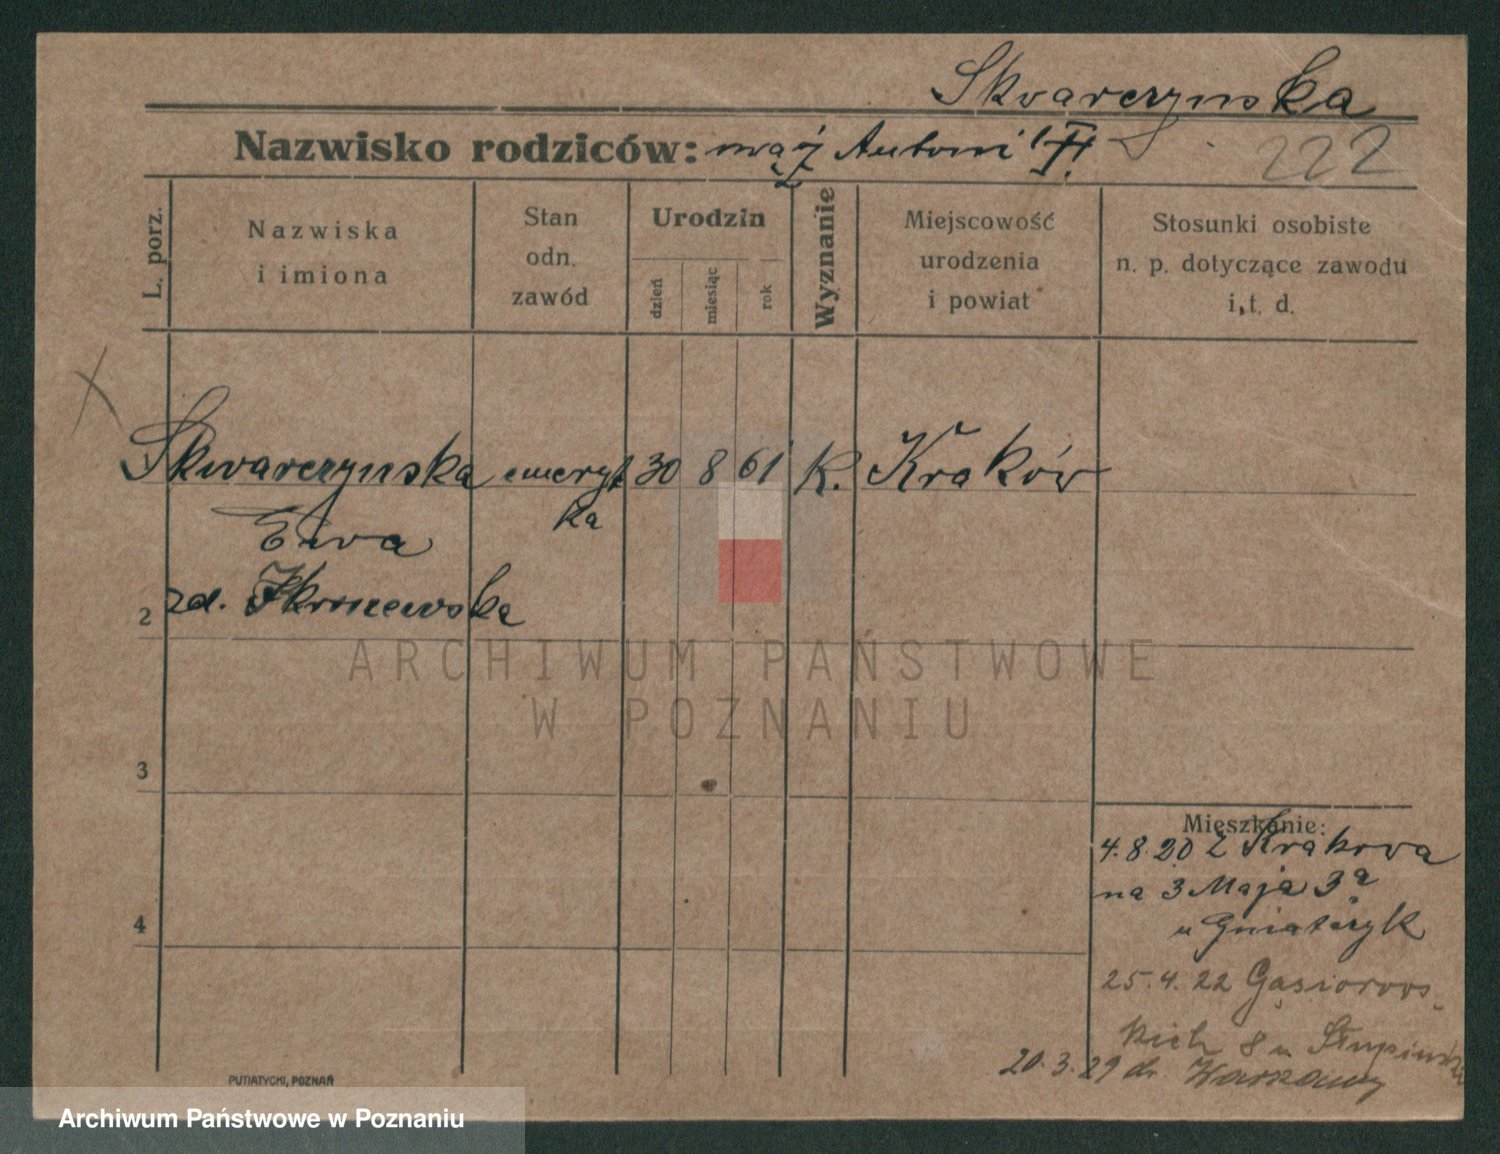 Skwarczynska
Nazwisko rodziców: mąż Antoni
222
L. porz.
Nazwiska
i imiona
Stan
odn.
zawód
Urodzin
dzień
miesiąc
rok
Wyznanie
Miejscowość
urodzenia
i powiat
Stosunki osobiste
n. p. dotyczące zawodu
i, t. d.
Skwarczynska emeryt 30 8 61 k. Kraków
ka
Ewa
zd.
2
3
4
ARCHIWUM PAŃSTWOWE
W POZNANIU
Mieszkanie:
4.8.20 z Krakowa
na 3 Maja 3a
u Gniatczyk
25.4.22 Gąsiorows-
kich 8 u
20.3.29 do Warszawy
PUTIATYCKI, POZNAŃ
Archiwum Państwowe w Poznaniu